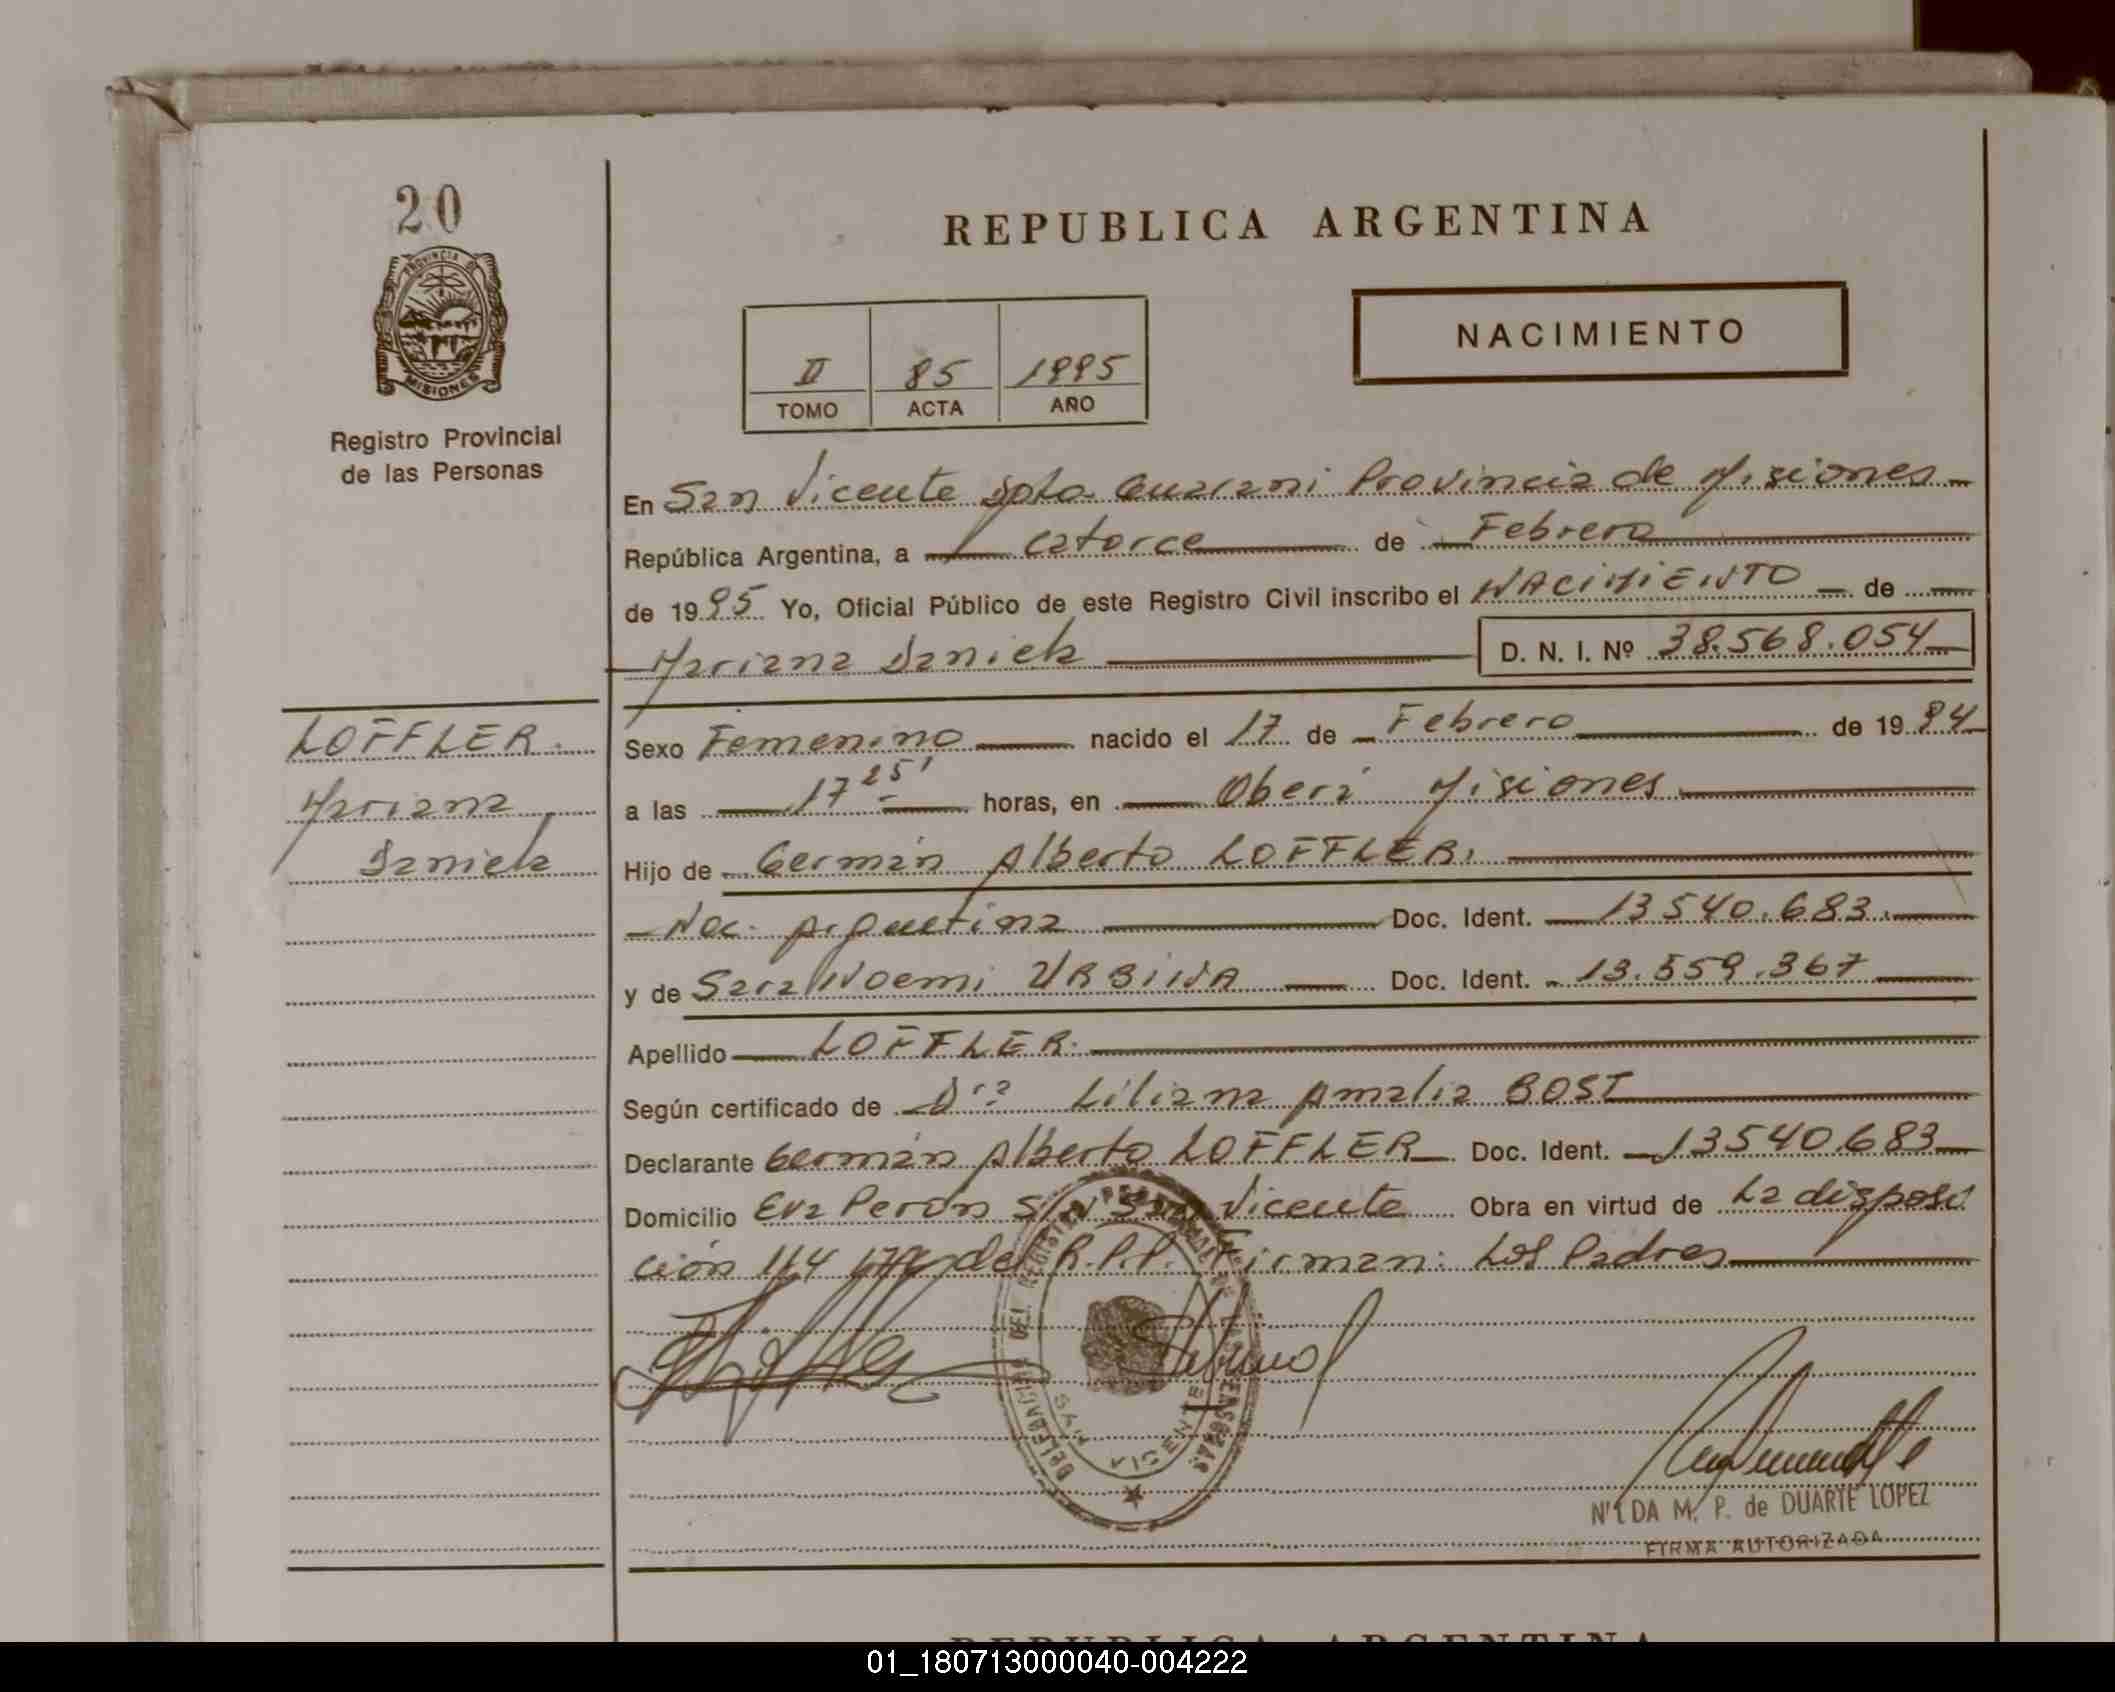 20
PROVINCIA DE
MISIONES
Registro Provincial
de las Personas
REPUBLICA ARGENTINA
II 85 1995
TOMO ACTA AÑO
NACIMIENTO
En San Vicente Dpto. Guarani Provincia de Misiones
República Argentina, a catorce de Febrero
de 1995 Yo, Oficial Público de este Registro Civil inscribo el NACIMIENTO de
Mariana Daniela D. N. I. Nº 38.568.054
LOFFLER
Mariana
Daniela
Sexo Femenino nacido el 17 de Febrero de 1994
a las 17 25' horas, en Oberá Misiones
Hijo de Germán Alberto LOFFLER.
Nac. Argentina Doc. Ident. 13540.683.
y de Sara Noemi URBINA Doc. Ident. 13.559.367
Apellido LOFFLER.
Según certificado de Dra Liliana Amalia BOST
Declarante Germán Alberto LOFFLER Doc. Ident. 13540683
Domicilio Eva Perón S/N San Vicente Obra en virtud de La disposi
ción 114 del R.P.P. Firman: Los Padres
DELEGACION DEL REGISTRO
SAN VICENTE
NILDA M. P. de DUARTE LOPEZ
FIRMA AUTORIZADA
REPUBLICA ARGENTINA
01_180713000040-004222